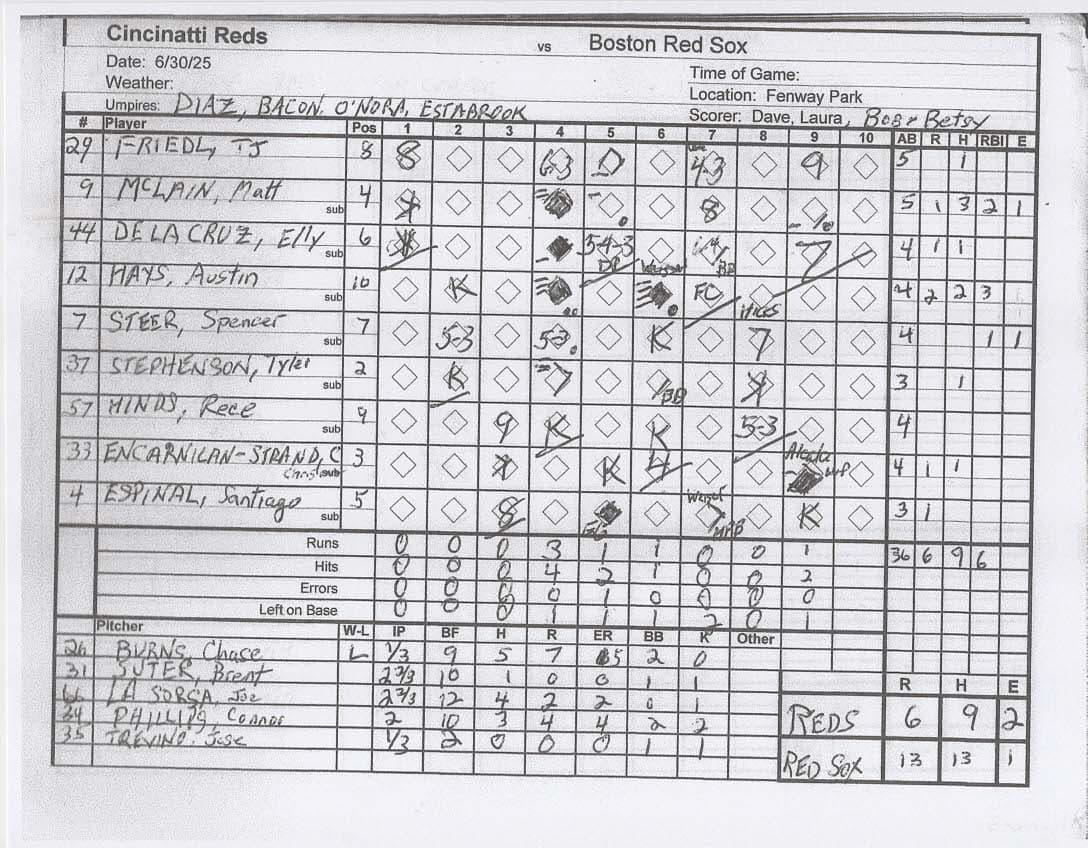 Cincinatti Reds vs Boston Red Sox
Date: 6/30/25
Weather: Time of Game:
Umpires: DIAZ, BACON. O'NORA, ESTABROOK Location: Fenway Park
Scorer: Dave, Laura, BOB & Betsy
# Player Pos 1 2 3 4 5 6 7 8 9 10 AB R H RBI E
29 FRIEDL, TJ 8 8 6-3 D 4-3 9 5 1
9 MCLAIN, Matt sub 4 8 5 1 3 2 1
44 DE LA CRUZ, Elly sub 6 5-4-3 DP BB 7 4 1 1
12 HAYS, Austin sub 10 K FC 4 2 2 3
7 STEER, Spencer sub 7 5-3 5-3 K 7 4 1 1
37 STEPHENSON, Tyler sub 2 K 7 BB 3 1
57 HINDS, Rece sub 9 9 K K 5-3 4
33 ENCARNILAN-STRAND, C sub 3 K 4 WP 4 1 1
4 ESPINAL, Santiago sub 5 8 7 K 3 1
Runs 0 0 0 3 1 1 0 0 1 36 6 9 6
Hits 0 0 0 4 2 1 0 0 2
Errors 0 0 0 0 1 0 0 0 0
Left on Base 0 0 0 1 1 1 2 0 1
Pitcher W-L IP BF H R ER BB K Other
26 BURNS, Chase L 1/3 9 5 7 5 2 0
31 SUTER, Brent 2 2/3 10 1 0 0 1 1
66 LA SORSA, Joe 2 2/3 12 4 2 2 0 1
34 PHILLIPS, Connor 2 10 3 4 4 2 2
35 TREVINO. Jose 1/3 2 0 0 0 1 1
R H E
REDS 6 9 2
RED SOX 13 13 1